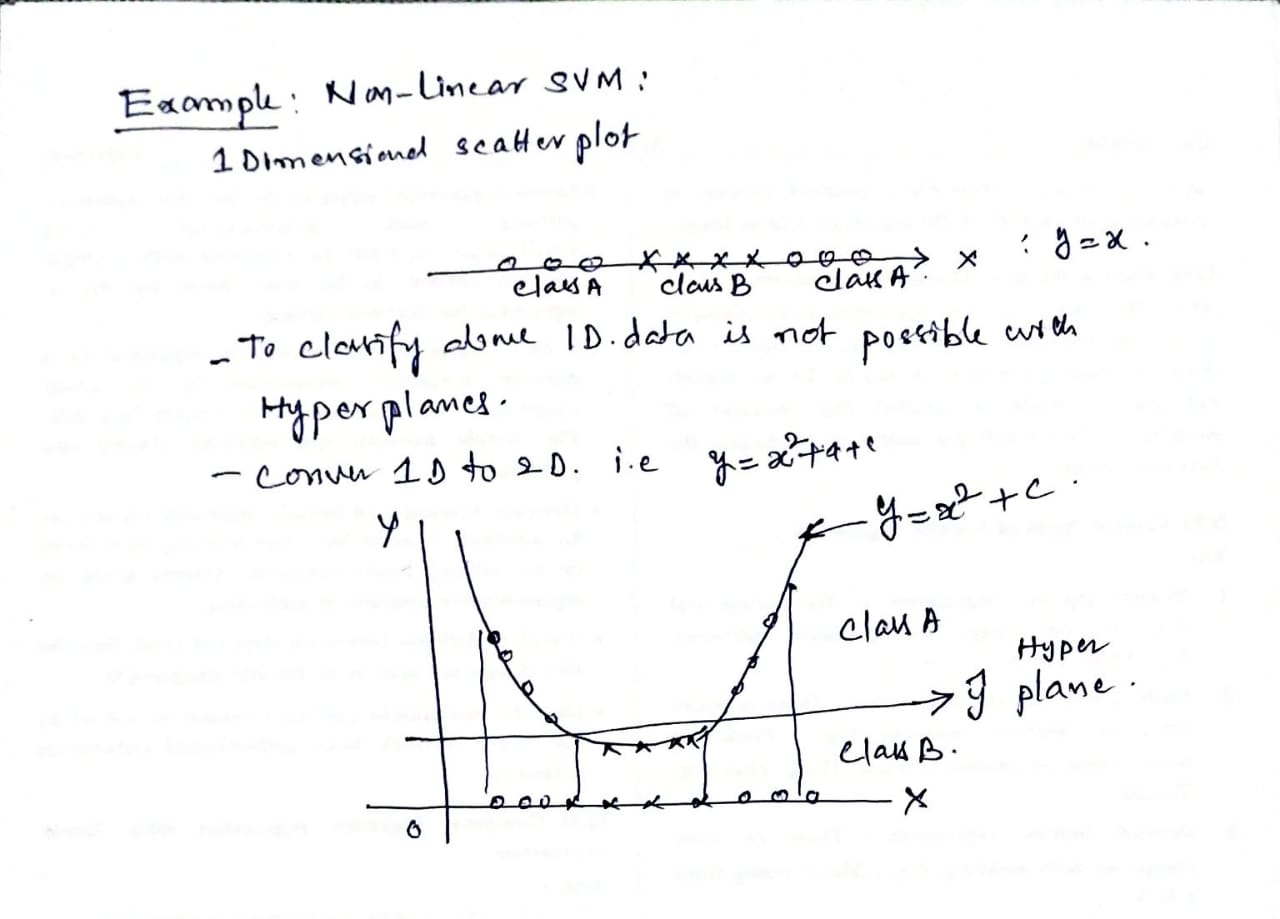 Example: Non-Linear SVM:
1 Dimensional scatter plot
x : y = x.
class A class B class A.
- To classify above 1D. data is not possible with
Hyper planes.
- Conver 1D to 2D. i.e y = x²+a+c
Y
y = x² + c.
Class A
Hyper
ŷ plane.
Class B.
X
0